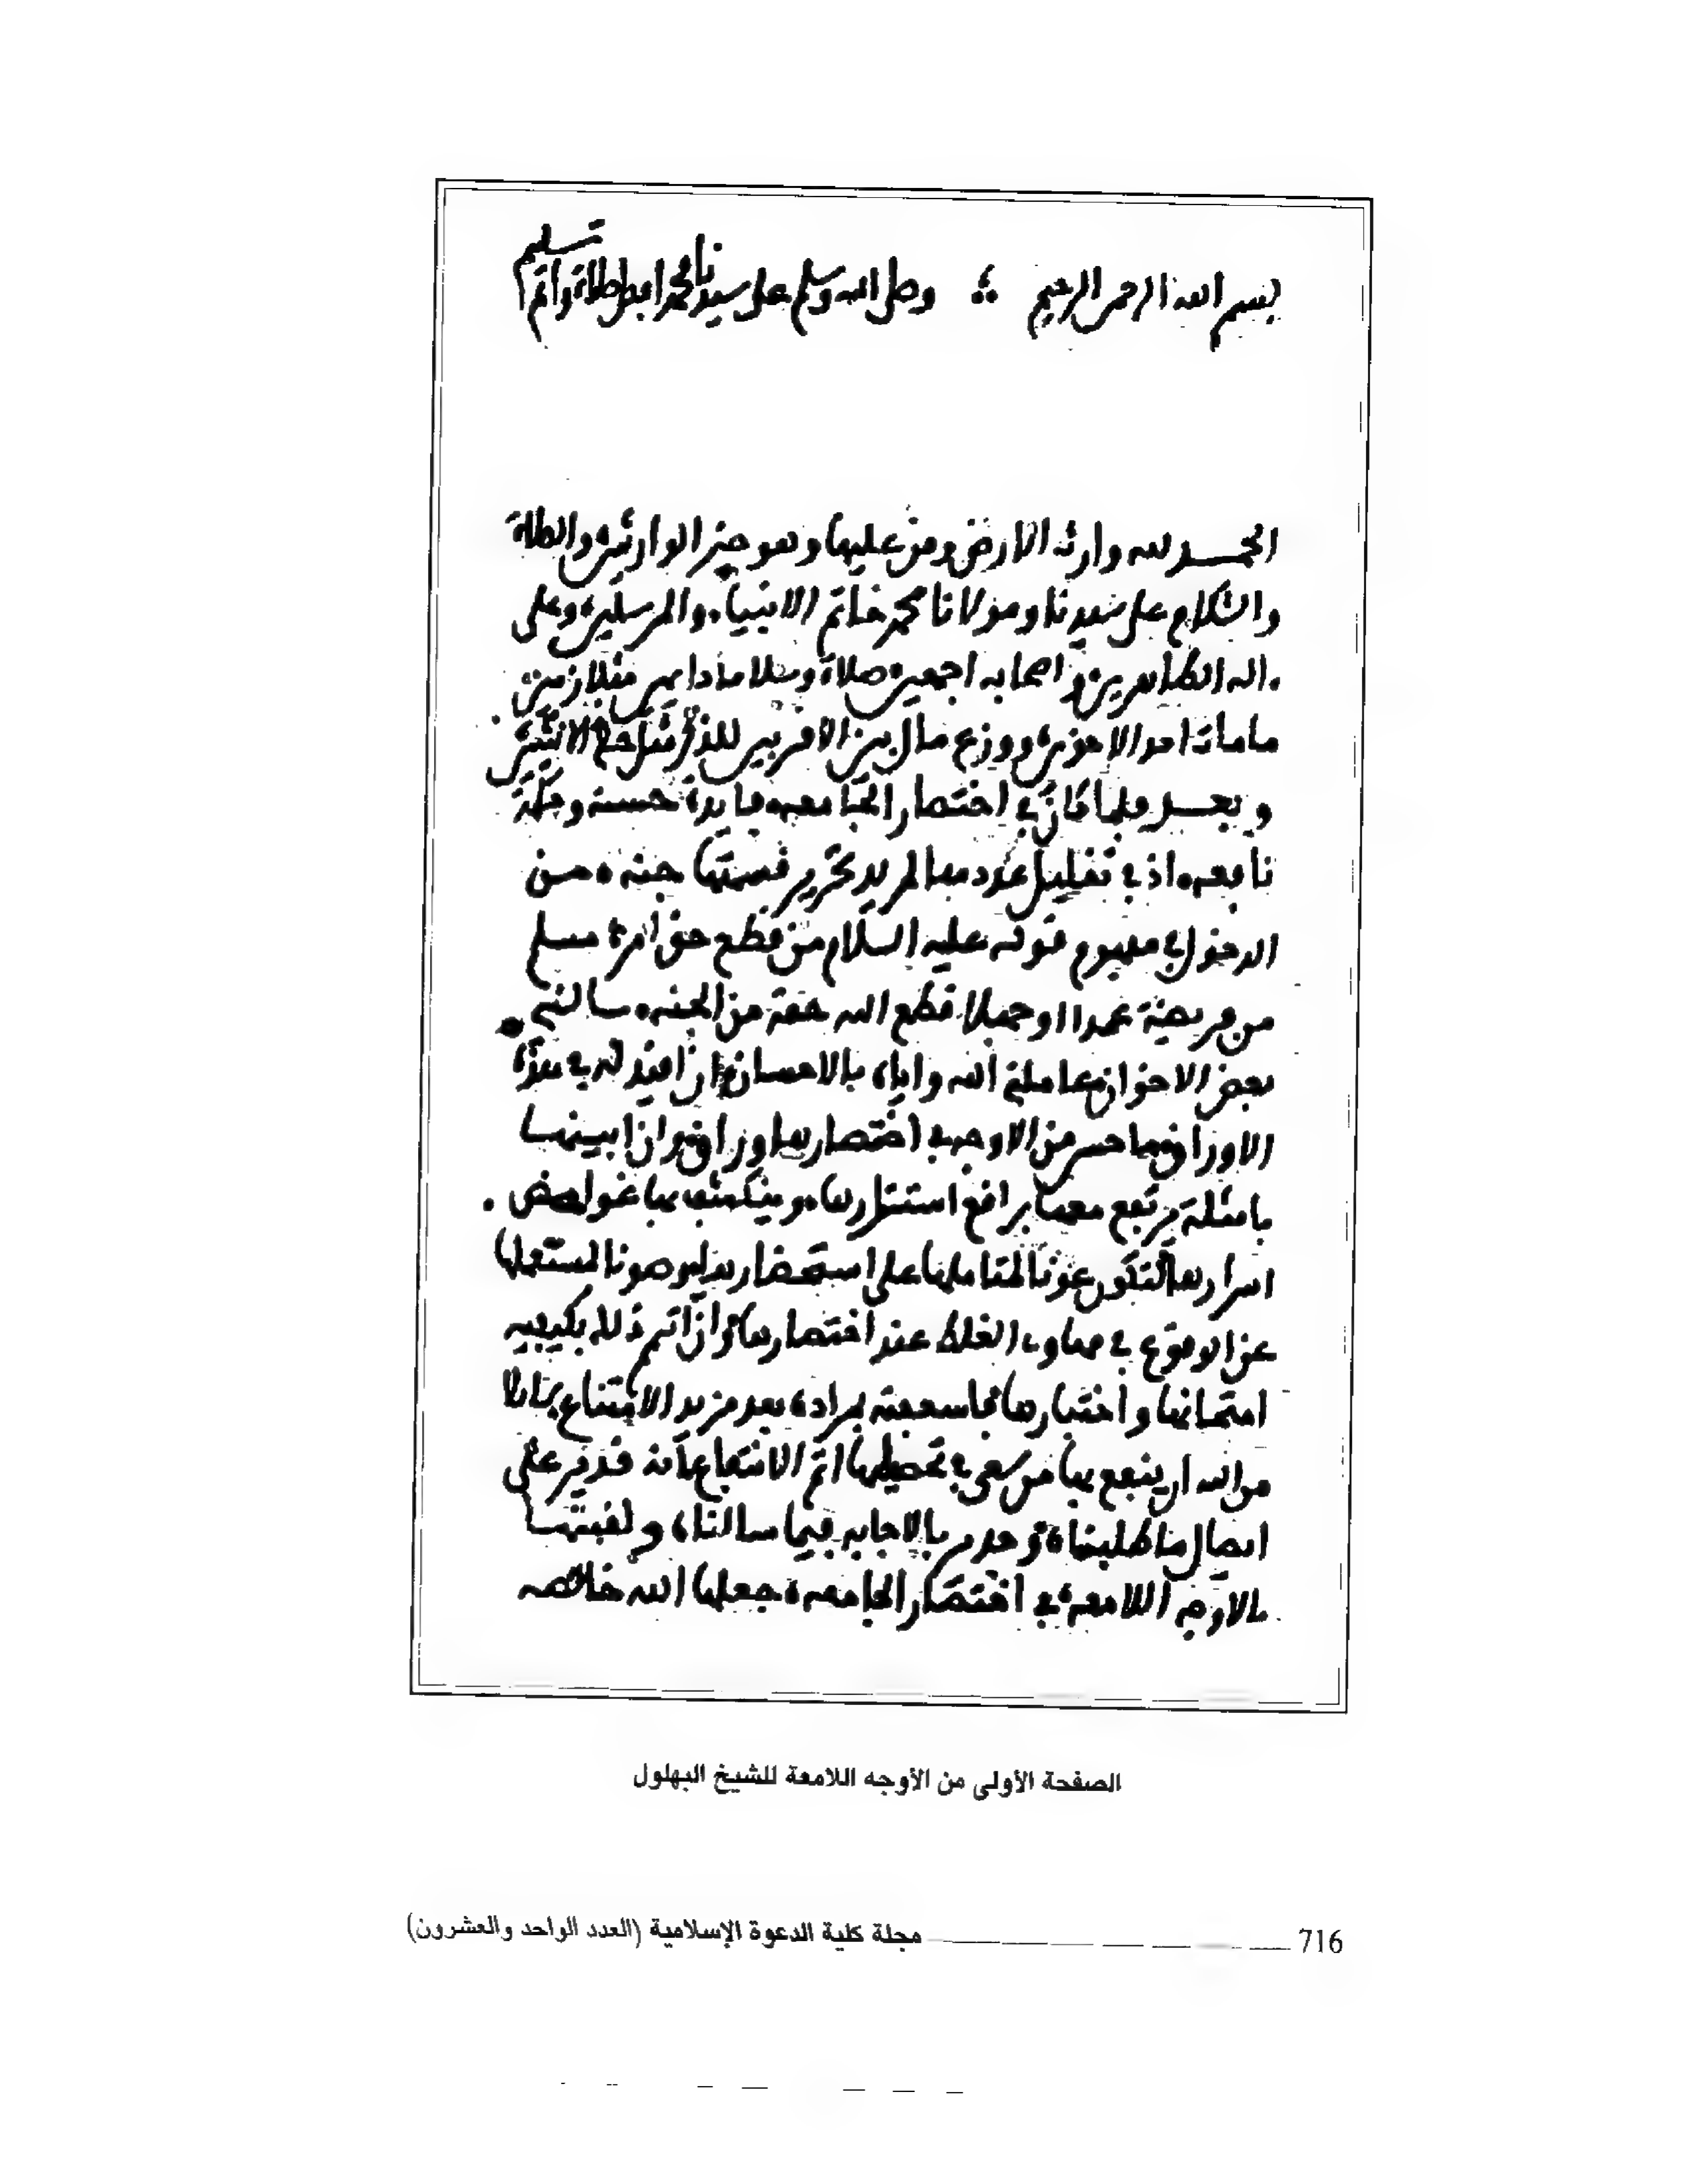 بسم الله الرحمن الرحيم وصلى الله وسلم على سيدنا محمد افضل صلاة واتم تسليم
الحمد لله وارث الارض ومن عليها وهو خير الوارثين والصلاة
والسلام على سيدنا ومولانا محمد خاتم الانبياء والمرسلين وعلى
ءاله الطاهرين واصحابه اجمعين صلاة وسلاما دايمين متلازمين
ما مات احد الاخوين ووزع مال بين الاقربين للذكر مثل حظ الانثيين
وبعد فلما كان في اختصار الجامعه فايدة حسنة وحكمة
نافعه اذ في تقليل عدد مها لمريد تحرير قسمتها جنه من
الدخول في مفهوم قوله عليه السلام من قطع حق امرئ مسلم
من فريضة عمدا او جهلا قطع الله حقه من الجنه سالني
بعض الاخوان عاملني الله واياه بالاحسان ان اقيد له في هذه
الاوراق ما حسن من الاوجه في اختصارها وراق وان ابينها
بامثلة يرتفع معها براقع استتارها وينكشف بها غوامض
اسرارها لتكون عونا لمتاملها على استحضارها وصونا لمستعملها
عن الوقوع في مهاوي الغلط عند اختصارها وان اتمم ذلك بكيفيه
امتحانها واختبارها فاسعفته بمراده بعد مزيد الامتناع
من الله ان ينفع بها من سعى في تحصيلها اتم الانتفاع انه قدير على
ايصال ما طلبناه بالاجابه فيما سالناه ولقبتها
بالاوجه اللامعه في اختصار الجامعه جعلها الله خالصه
الصفحة الأولى من الأوجه اللامعة للشيخ البهلول
716 مجلة كلية الدعوة الإسلامية (العدد الواحد والعشرون)